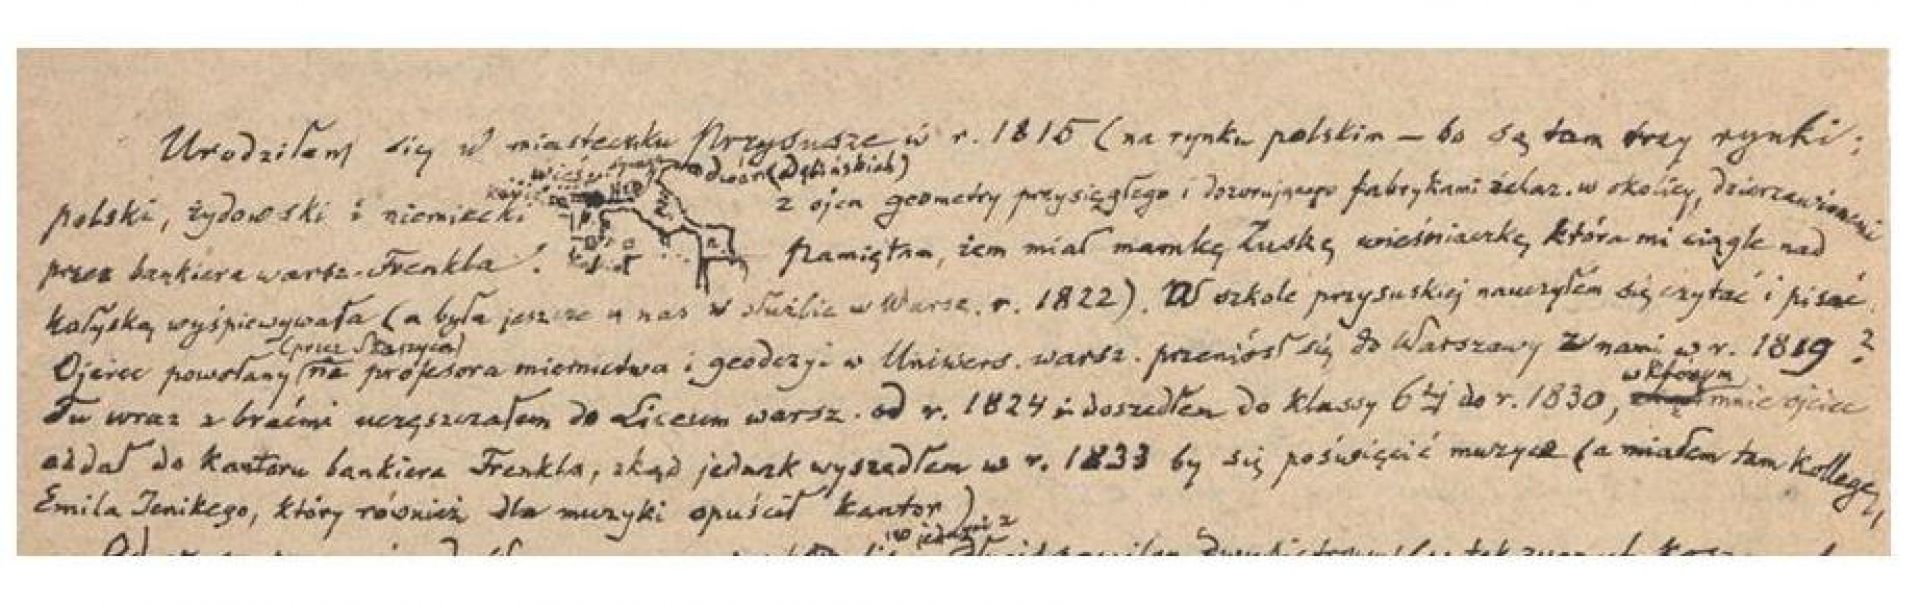 Urodziłem się w miasteczku Przysusze w r. 1815 (na rynku polskim — bo są tam trzy rynki:
wieś dwór (Dębińskich)
polski, żydowski i niemiecki z ojca geometry przysięgłego i dozorującego fabrykami żelaz. w okolicy, dzierzawionemi
przez bankiera warsz. Frenkla. Pamiętam, żem miał mamkę Zuskę wieśniaczkę która mi ciągle nad
kołyską wyśpiewywała (a była jeszcze u nas w służbie w Warsz. r. 1822). W szkole przysuskiej nauczyłem się czytać i pisać.
(przez Staszyca)
Ojciec powołany na profesora miernictwa i geodezyi w Uniwers. warsz. przeniósł się do Warszawy z nami w r. 1819?
w którym
Tu wraz z braćmi uczęszczałem do Liceum warsz. od r. 1824 i doszedłem do klassy 6tej do r. 1830, mnie ojciec
oddał do kantoru bankiera Frenkla, zkąd jednak wyszedłem w r. 1833 by się poświęcić muzyce (a miałem tam kollegę,
Emila Jenikego, który również dla muzyki opuścił kantor)